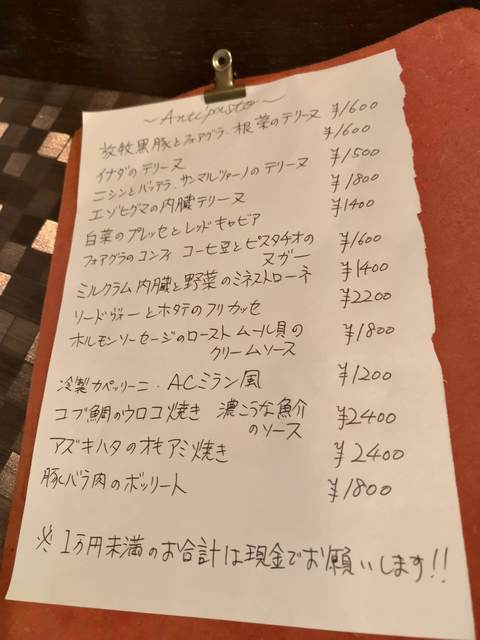 ~Antipasto~
放牧黒豚とフォアグラ、根菜のテリーヌ ¥1600
イナダのテリーヌ ¥1600
ニシンとバッテラ、サンマルツァーノのテリーヌ ¥1500
エゾヒグマの内臓テリーヌ ¥1800
白菜のプレッセとレッドキャビア ¥1400
フォアグラのコンフィ コーヒー豆とピスタチオの
ヌガー ¥1600
ミルクラム内臓と野菜のミネストローネ ¥1400
リードヴォーとホタテのフリカッセ ¥2200
ホルモンソーセージのロースト ムール貝の
クリームソース ¥1800
冷製カペッリーニ・ACミラン風 ¥1200
コブ鯛のウロコ焼き 濃こうな魚介
のソース ¥2400
アズキハタのオキアミ焼き ¥2400
豚バラ肉のボッリート ¥1800
※1万円未満のお会計は現金でお願いします!!